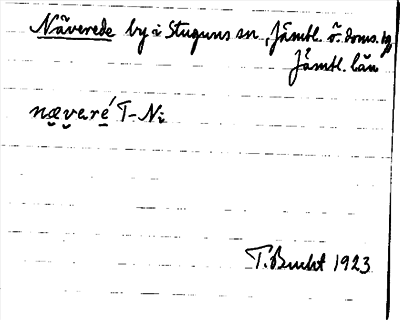 Näverede by i Stuguns sn, Jämtl. ö. doms. hg
Jämtl. län
næveré T-Ni
T. Bucht 1923